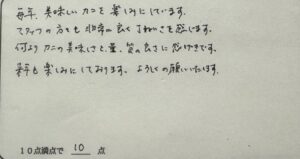 毎年、美味しいカニを楽しみにしています。
スタッフの方々も非常に良く、きれいさを感じます。
何よりカニの美味しさと、量、質の良さに感げきです。
来年も楽しみにしております。よろしくお願いいたします。
10点満点で 10 点